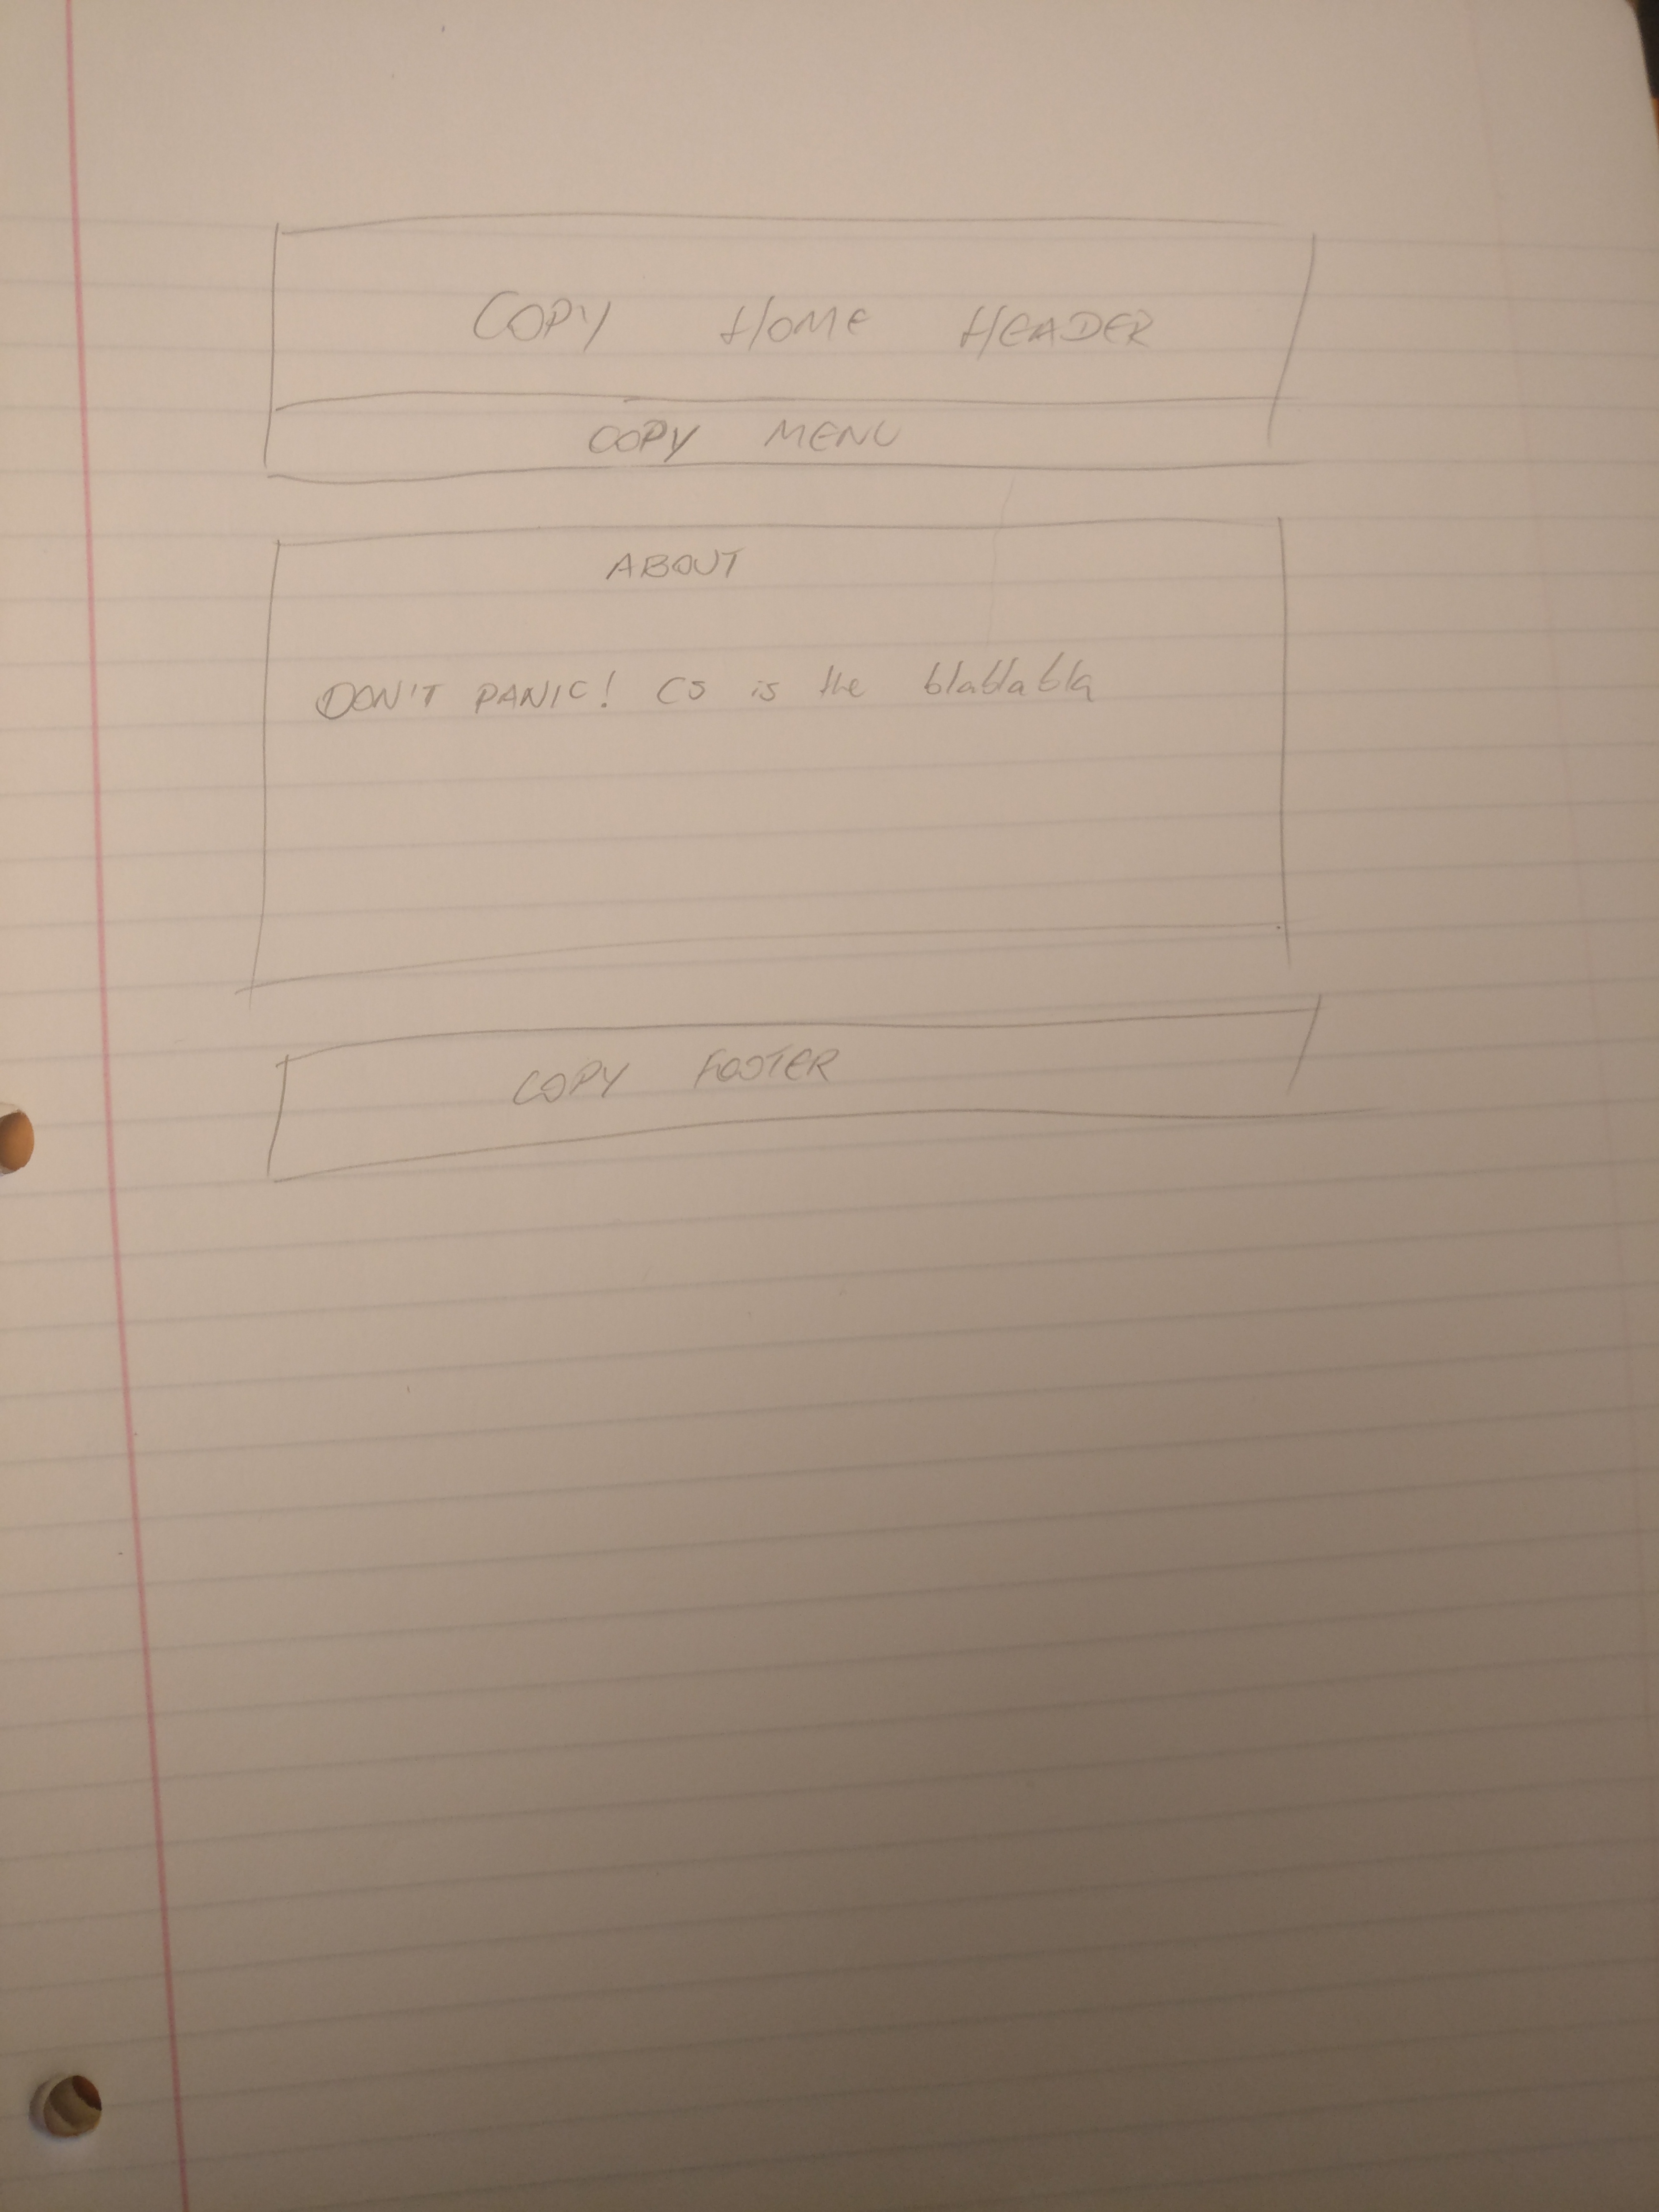 COPY HOME HEADER
COPY MENU
ABOUT
DON'T PANIC! CS is the blablabla
COPY FOOTER